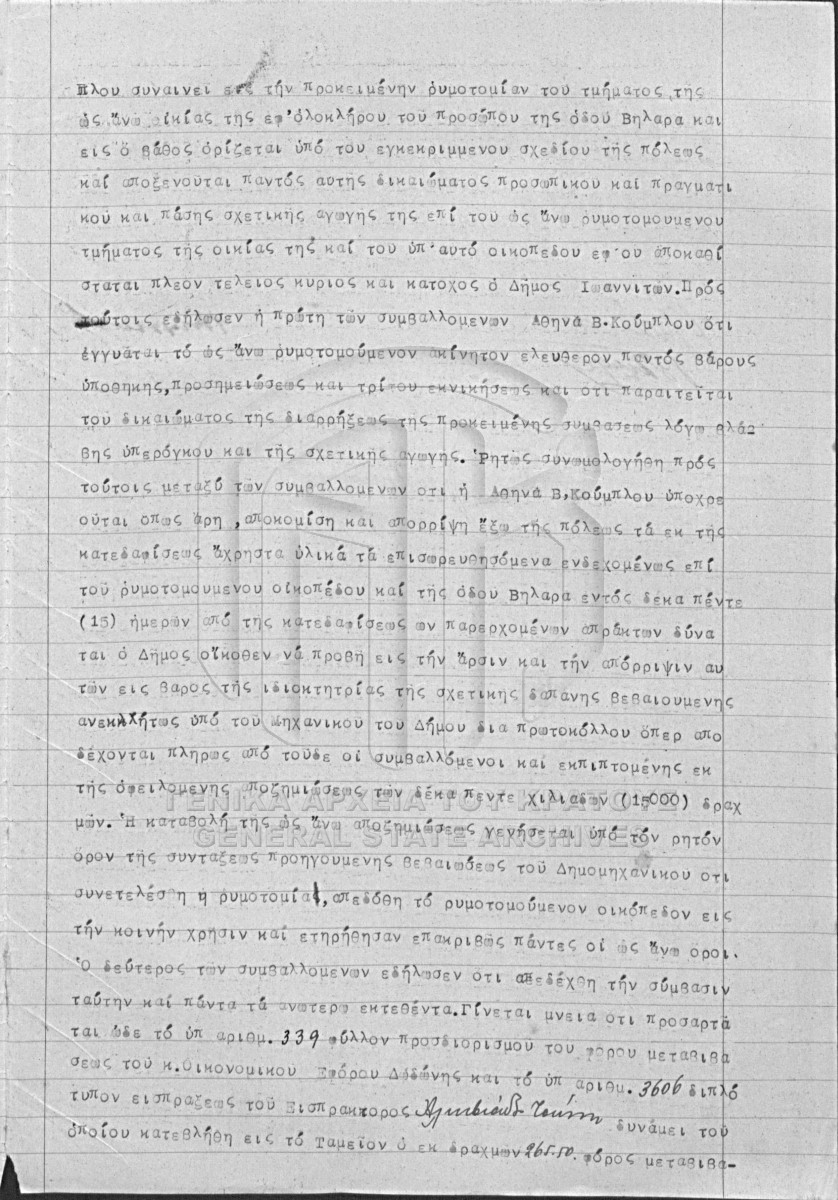 πλου συναινει εις τήν προκειμένην ρυμοτομίαν του τμήματος της
ώς άνω οικίας της εφ'ολοκλήρου του προσώπου της όδου Βηλαρα και
εις ό βάθος όρίζεται ύπό του εγκεκριμμενου σχεδίου τής πόλεως
καί αποξενουται παντός αυτής δικαιώματος προσωπικου καί πραγματι
κού και πάσης σχετικής αγωγής της επί του ώς άνω ρυμοτομουμενου
τμήματος τής οικίας της καί του ύπ'αυτό οικοπεδου εφ'ου άποκαθί
σταται πλεον τελειος κυριος και κατοχος ό Δήμος Ιωαννιτών.Πρός
τούτοις εδήλωσεν ή πρώτη τών συμβαλλομενων Αθηνά Β.Κούμπλου ότι
έγγυάται τό ώς άνω ρυμοτομούμενον ακίνητον ελευθερον παντός βάρους
ύποθηκης,προσημειώσεως και τρίτου εκνικήσεως και οτι παραιτείται
του δικαιώματος της διαρρήξεως τής προκειμένης συμβασεως λόγω βλά
βης ύπερόγκου και τής σχετικής αγωγής. Ρητώς συνωμολογήθη πρός
τούτοις μεταξύ τών συμβαλλομενων οτι ή Αθηνά Β.Κούμπλου ύποχρε
ούται όπως άρη ,αποκομίση και απορρίψη έξω τής πόλεως τά εκ τής
κατεδαφίσεως άχρηστα ύλικά τά επισωρευθησόμενα ενδεχομένως επί
του ρυμοτομουμενου οίκοπέδου καί τής όδου Βηλαρα εντός δεκα πέντε
(15) ήμερών από τής κατεδαφίσεως ων παρερχομένων απράκτων δύνα
ται ό Δήμος οίκοθεν νά προβή εις τήν άρσιν και τήν απόρριψιν αυ
τών εις βαρος τής ιδιοκτητρίας τής σχετικής δαπάνης βεβαιουμενης
ανεκκλήτως ύπό του μηχανικου του Δήμου δια πρωτοκόλλου όπερ απο
δέχονται πληρως από τούδε οί συμβαλλόμενοι καί εκπιπτομένης εκ
τής όφειλομένης αποζημιώσεως τών δέκα πεντε χιλιαδων (15000) δραχ
μών. Ή καταβολή τής ώς άνω αποζημιώσεως γενήσεται ύπό τόν ρητόν
όρον τής συνταξεως προηγουμενης βεβαιώσεως του Δημομηχανικου οτι
συνετελέσθη ή ρυμοτομία,απεδόθη τό ρυμοτομούμενον οικόπεδον εις
τήν κοινήν χρήσιν καί ετηρήθησαν επακριβώς πάντες οί ώς άνω όροι.
Ό δεύτερος τών συμβαλλομενων εδήλωσεν οτι απεδέχθη τήν σύμβασιν
ταύτην καί πάντα τά ανωτερω εκτεθέντα.Γίνεται μνεια οτι προσαρτά
ται ώδε τό ύπ αριθμ. 339 φύλλον προσδιορισμού του φορου μεταβιβά
σεως τού κ.Οικονομικού Εφόρου Δωδώνης και τό ύπ αριθμ. 3606 διπλό
τυπον εισπραξεως τού Εισπρακτορος δυνάμει τού
όποίου κατεβλήθη εις τό Ταμείον ό εκ δραχμών 265.50. φόρος μεταβιβα-
ΓΕΝΙΚΑ ΑΡΧΕΙΑ ΤΟΥ ΚΡΑΤΟΥΣ
GENERAL STATE ARCHIVES